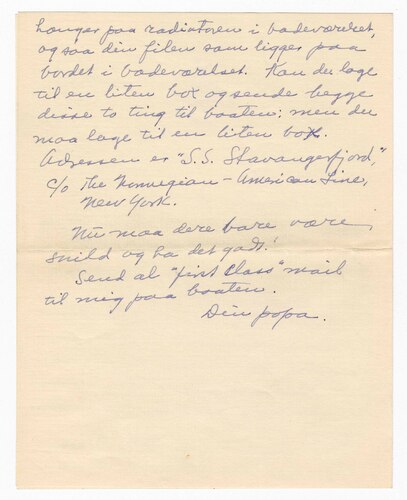 henger paa radiatoren i badeværelset,
og saa den filen som ligger paa
bordet i badeværelset. Kan du lage
til en liten box og sende begge
disse to ting til baaten; men du
maa lage til en liten box.
Adressen er "S.S. Stavangerfjord,"
c/o The Norwegian-American Line,
New York.
Nu maa dere bare være
snild og ha det godt!
Send al "first class" mail
til mig paa baaten.
Din papa.